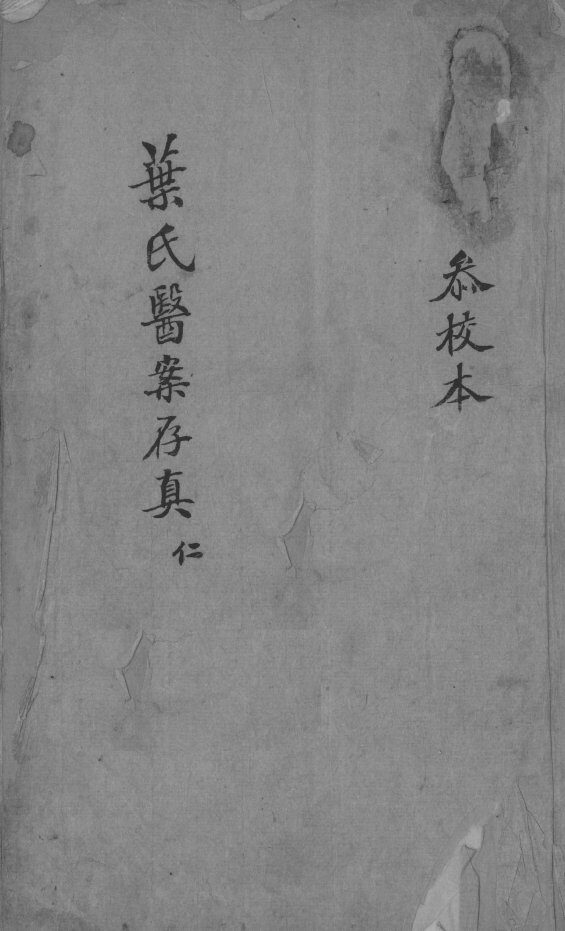 叅校本
葉氏醫案存真
仁